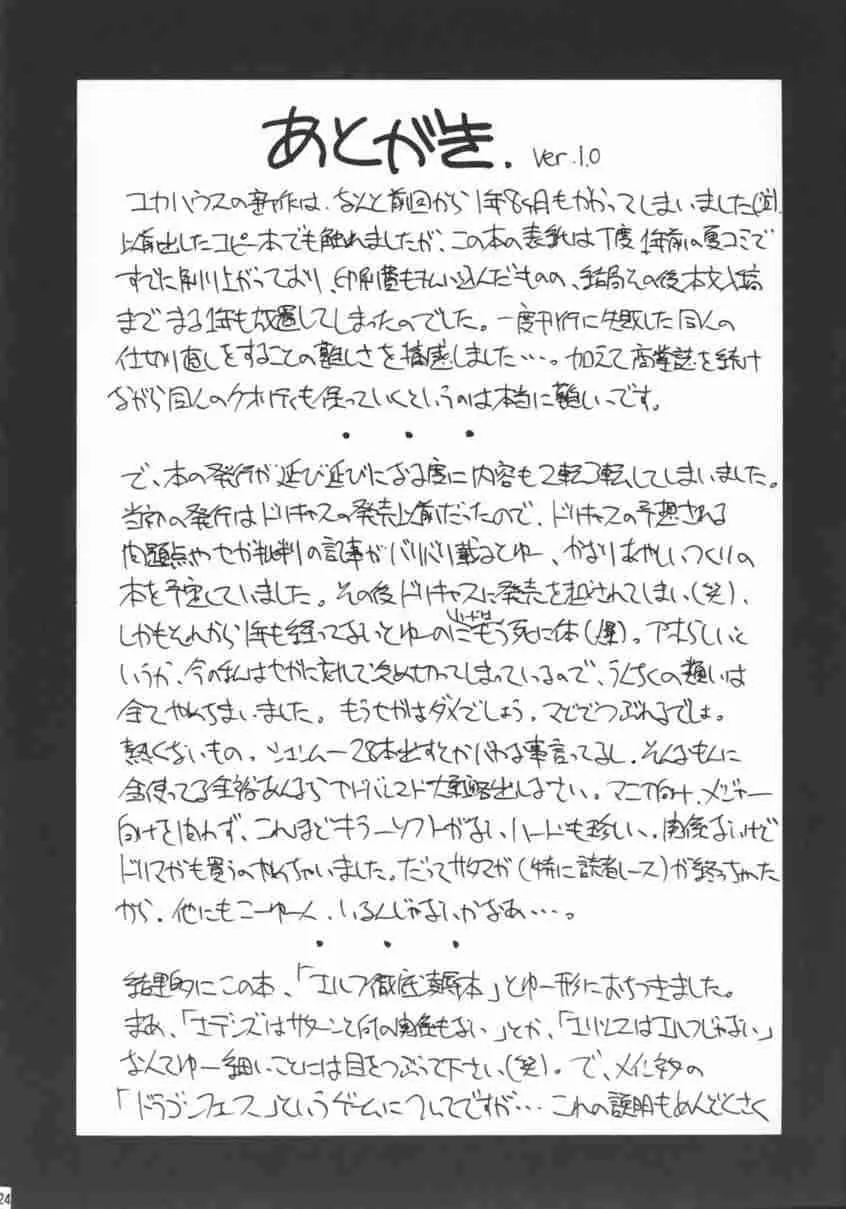 あとがき. Ver.1.0
ユカハウスの新作は、なんと前回から1年8ヶ月もかかってしまいました
以前出したコピー本でも触れましたが、この本の表紙は丁度1年前の夏コミで
すでに刷り上がっており、印刷費も払い込んだものの、結局その後本文入稿
までまる1年も放置してしまったのでした。一度刊行に失敗した同人の
仕切り直しをすることの難しさを痛感しました…。加えて商業誌を続け
ながら同人のクオリティも保っていくというのは本当に難しいっです。
・・・
で、本の発行が延び延びになる度に内容も2転3転してしまいました。
当初の発行はドリキャスの発売以前だったので、ドリキャスの予想される
問題点やセガ批判の記事がバリバリ載るとゆー、かなりあやしいつくりの
本を予定していました。その後ドリキャスに発売を越されてしまい(笑)、
しかもそれから1年も経ってないとゆーのにもう死に体(爆)。アホらしいと
いうか、今の私はセガに忘れて冷め切ってしまっているので、うんちくの類いは
全てやめちまいました。もうセガはダメでしょう。マジでつぶれるでしょ。
熱くないもの。シェンムー28本出すとかバカな事言ってるし。そんなもんに
金使ってる余裕あんならアドバンスド大戦略出しなさい。マニア向け、メジャー
向けを問わず、これほどキラーソフトがないハードも珍しい。関係ないけど
ドリマガも買うのやめちゃいました。だってサタマガ(特に読者レース)が終っちゃった
から。他にもこーゆー人、いるんじゃないかなあ…。
・・・
結果的にこの本、「エルフ徹底凌辱本」とゆー形におちつきました。
まあ、「エデンズはサターンと何の関係もない」とか、「ユリシスはエルフじゃない」
なんてゆー細いことには目をつぶって下さい(笑)。で、メインネタの
「ドラゴンフォース」というゲームについてですが…これの説明もめんどくさく
24